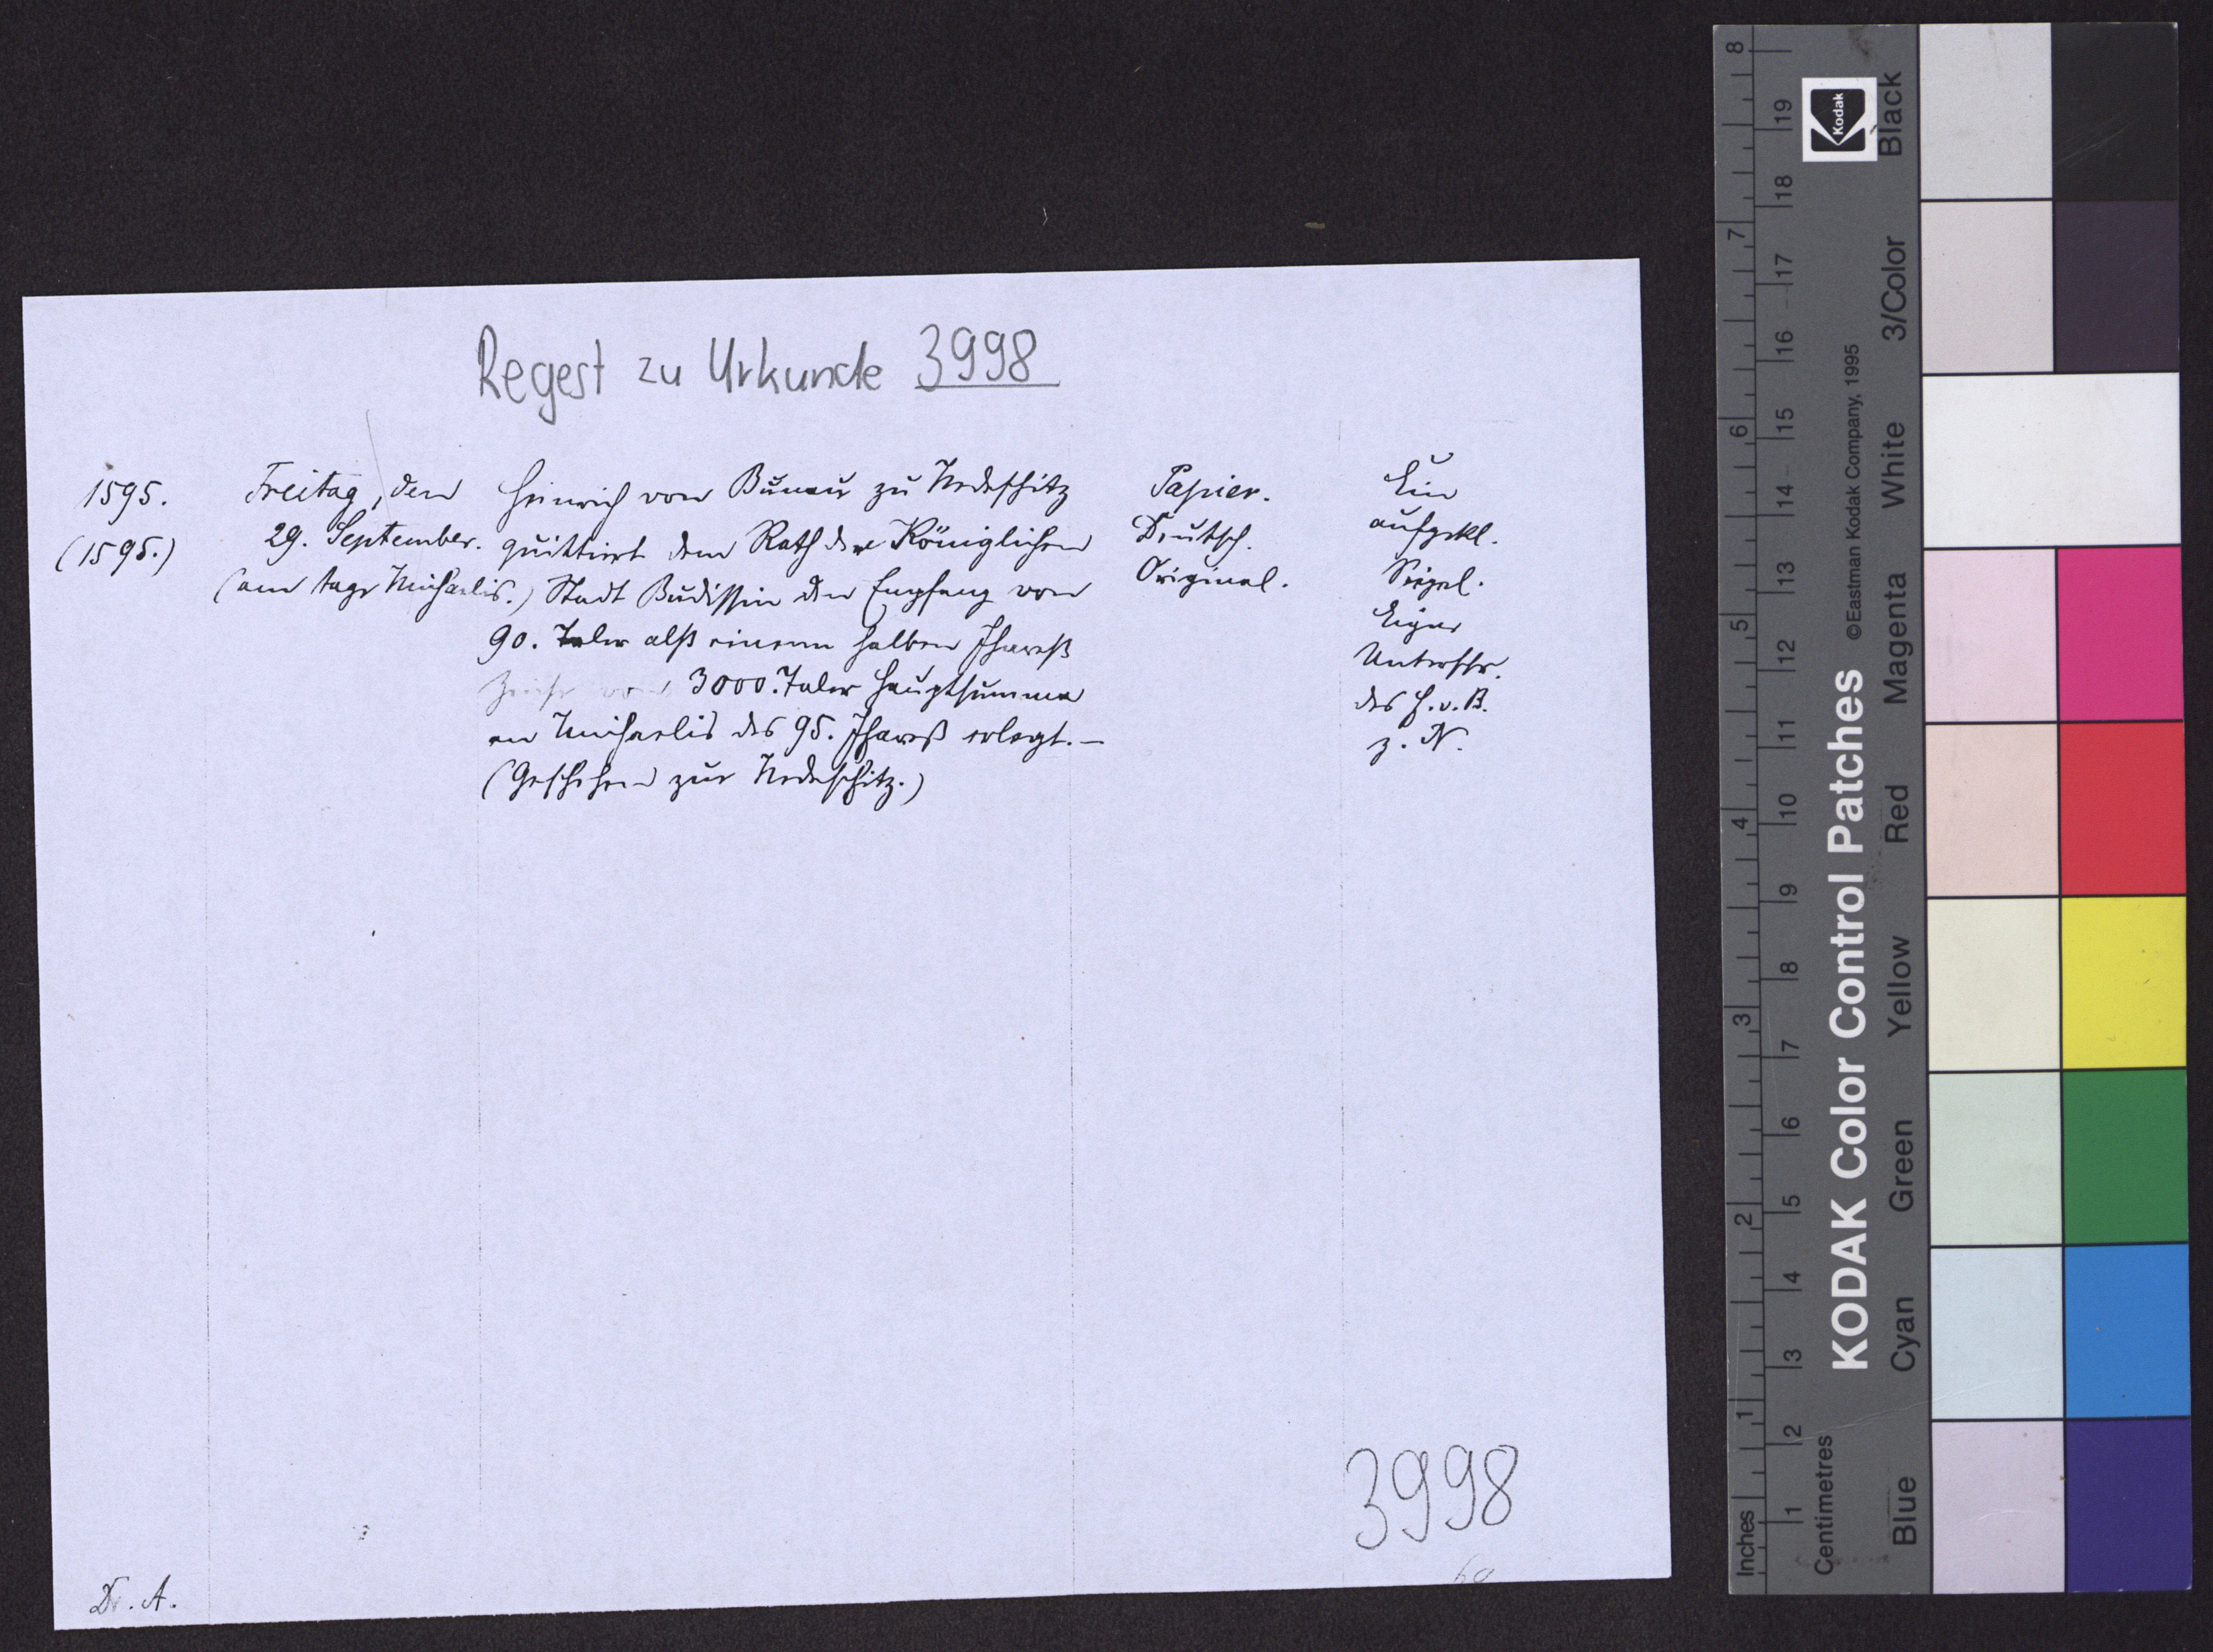 Regest zu Urkunde 3998
1595.
(1595.)
Freitag, den
29. September.
(am tage Michaelis.)
Heinrich von Bünau zu Nedaschitz
quittiert dem Rath der Königlichen
Stadt Budissin den Empfang von
90. Taler alß einem halben Jhareß
Zinse von 3000. Taler Hauptsumma
an Michaelis des 95. Jhareß erlegt. —
(Geschehen zur Nedaschitz.)
Papier.
Deutsch.
Original.
Ein
aufgekl.
Siegel.
Eigne
Unterschr.
des H. v. B.
z. N.
3998
Dr. A.
KODAK Color Control Patches
©Eastman Kodak Company, 1995
Kodak
Inches 1 2 3 4 5 6 7 8
Centimetres 1 2 3 4 5 6 7 8 9 10 11 12 13 14 15 16 17 18 19
Blue Cyan Green Yellow Red Magenta White 3/Color Black